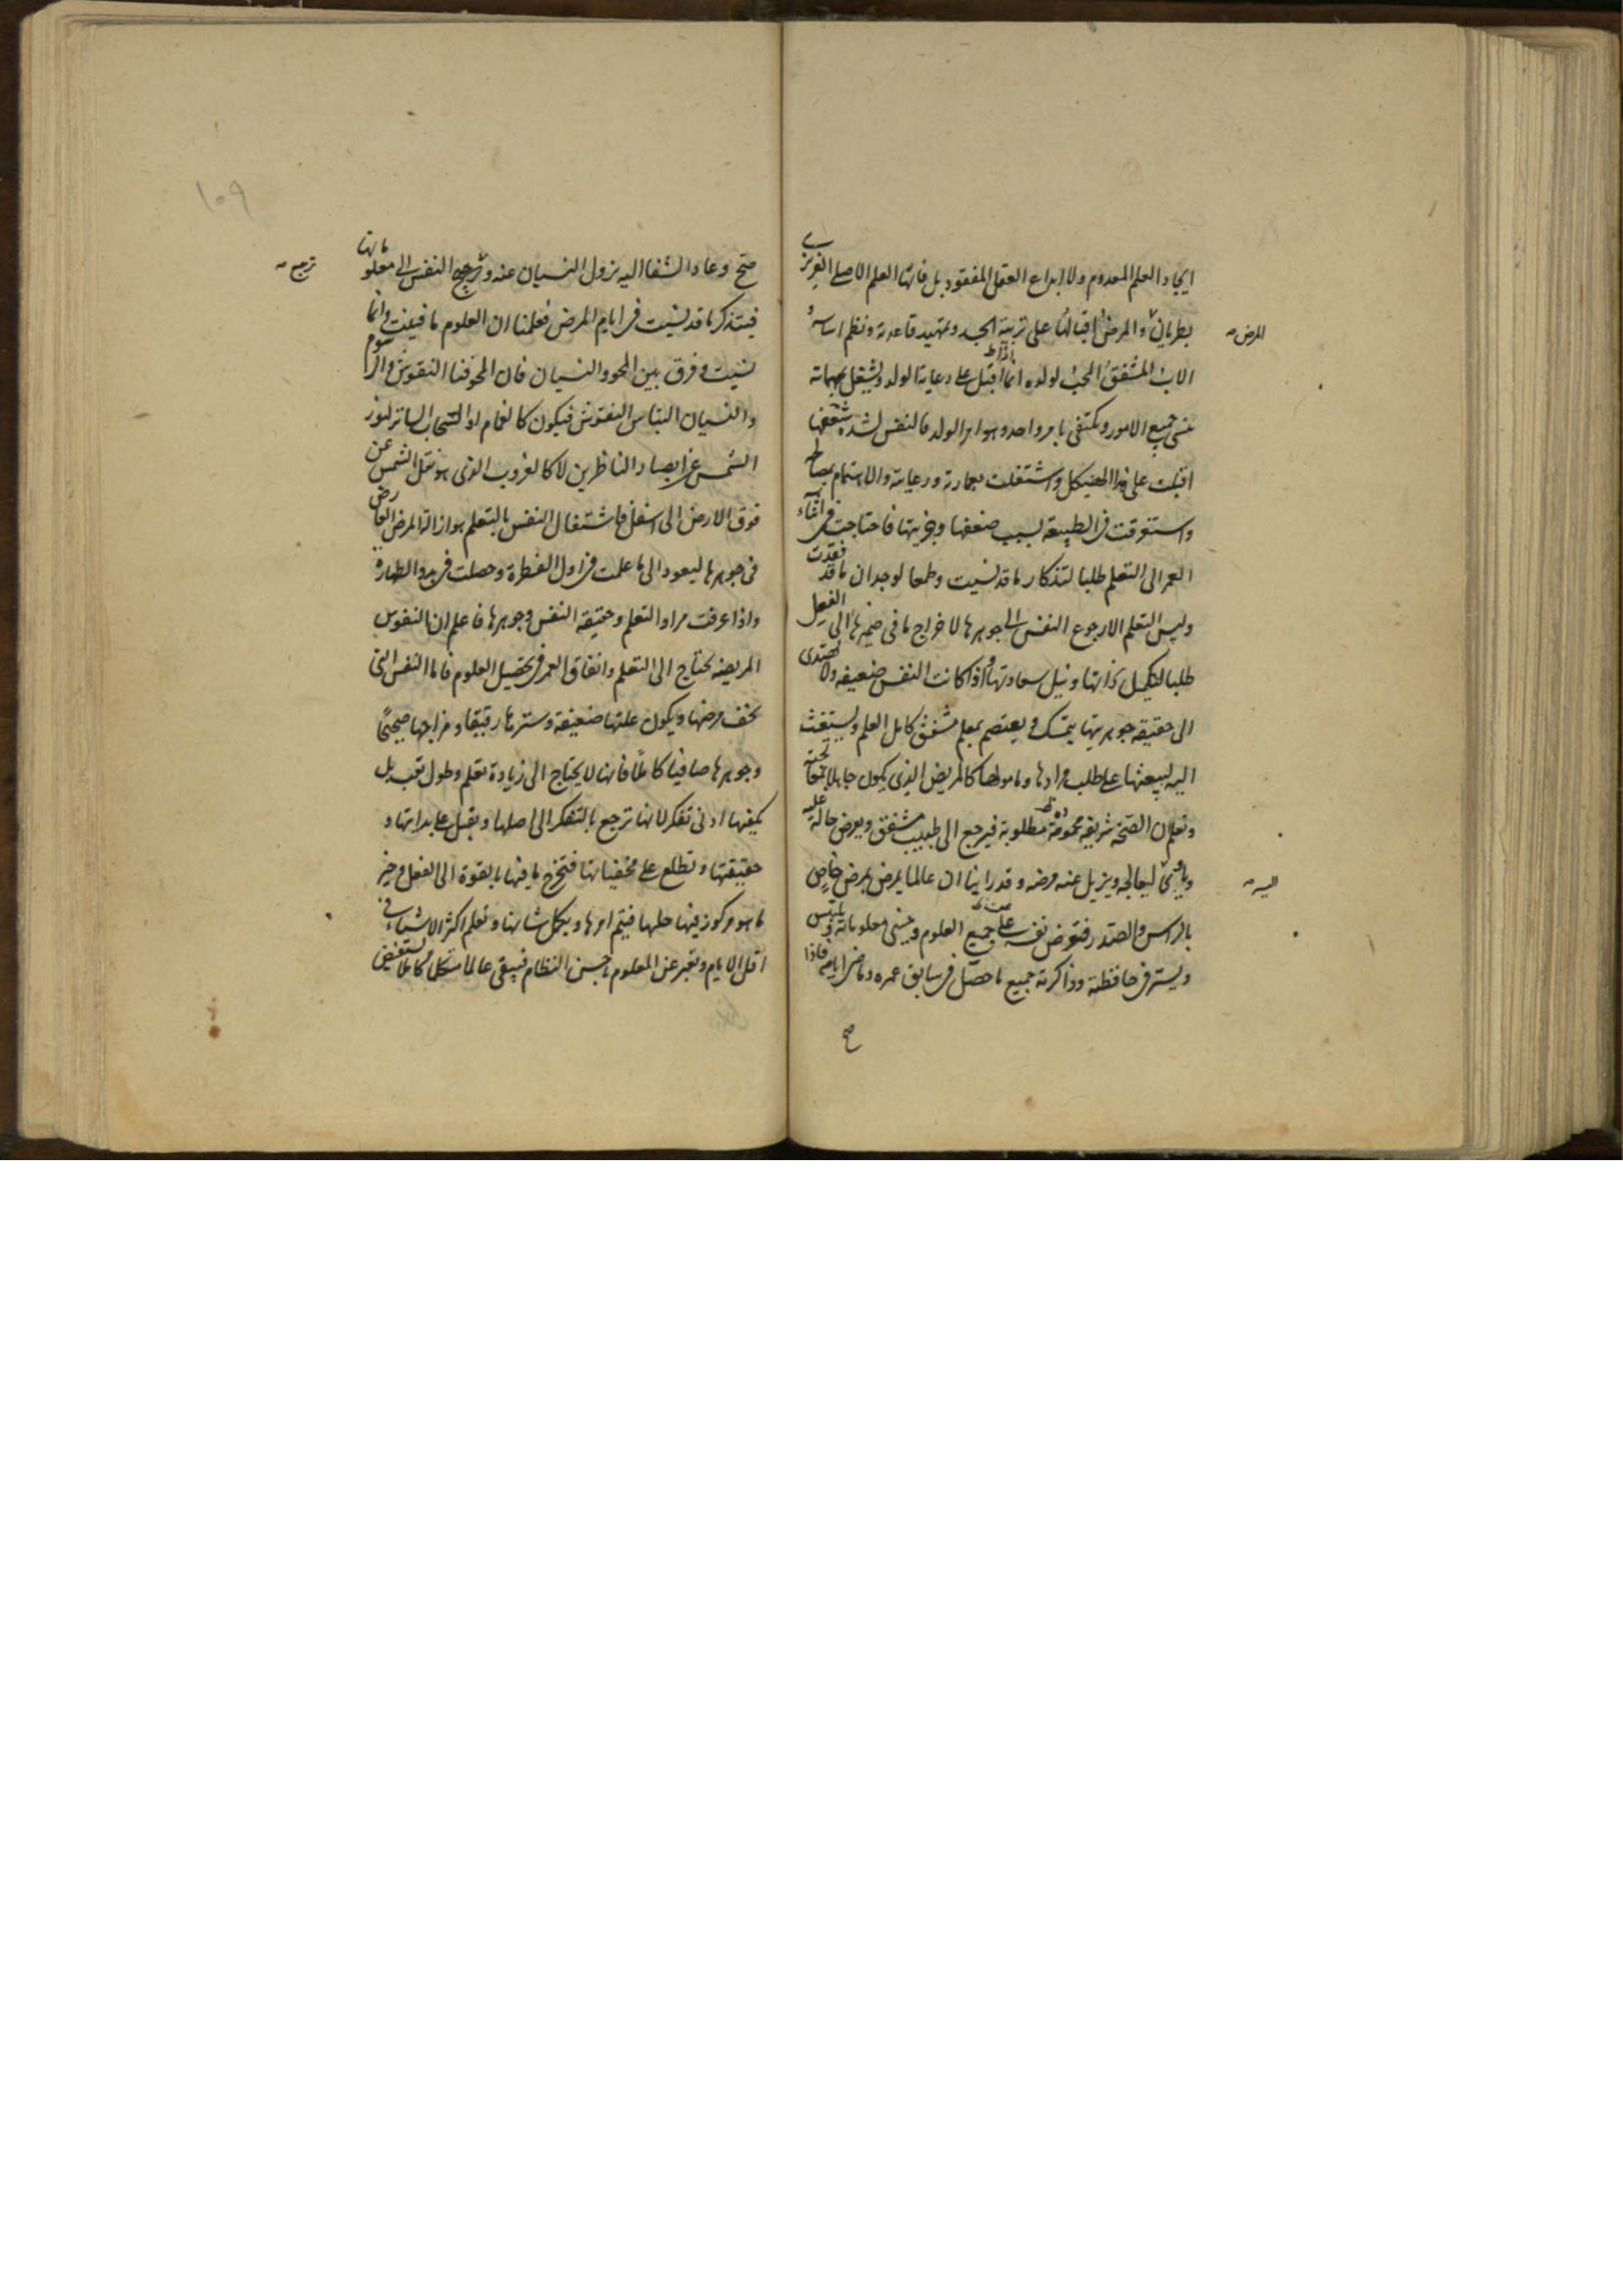 ايجاد العلم المعدوم ولا ابداع العقل المفقود بل فانها العلم الاصلى الغريزى
بطريان والمرض اقبالها على تربية الجسد وتمهيد قاعدته ونظم اساسه
المرض
الاب المشفق المحب لولده اذا اقبل على رعاية الولد ويشتغل بمهماته
ينسى جميع الامور ويكتفى بامر واحد وهو امر الولد فالنفس لشدة شغفها
اقبلت على هذا الهيكل واشتغلت بعمارته ورعايته والاهتمام بمصالحه
واستغرقت فى الطبيعة بسبب ضعفها وجزئيتها فاحتاجت فى اثناء
العمر الى التعلم طلبا لتذكار ما قد نسيت وطمعا لوجدان ما قد فقدت
وليس التعلم الا رجوع النفس الى جوهرها لاخراج ما فى ضميرها الى الفعل
طلبا لتكميل ذاتها ونيل سعادتها واذا كانت النفس ضعيفة ولا تهتدى
الى حقيقة جوهريتها يتمسك ويعتصم بمعلم مشفق كامل العلم ويستغيث
اليه ليعينها على طلب مرادها ومامولها كالمريض الذى يكون جاهلا بمعالجته
ونعلم ان الصحة شريفة محمودة مطلوبة فيرجع الى طبيب مشفق ويعرض حاله عليه
ويأوى ليعالجه ويزيل عنه مرضه وقد راينا ان عالما يمرض بمرض خاص
اليه
بالراس والصدر فتعرض نفسه على جميع العلوم وينسى معلوماته ويلتبس
ويستر فى حافظته وذاكرته جميع ما حصل فى سابق عمره وماضى ايامه فاذا
صح
١٠٩
صح وعاد الشفا اليه يزول النسيان عنه وترجع النفس الى معلوماتها
ترجع
فيتذكر ما قد نسيت فى ايام المرض فعلمنا ان العلوم ما فنيت وانما
نسيت وفرق بين المحو والنسيان فان المحو فنا النقوش والرسوم
والنسيان التباس النقوش فيكون كالغمام او السحاب الساتر لنور
الشمس عن ابصار الناظرين لا كالغروب الذى هو نقل الشمس عن
فوق الارض الى اسفل فاشتغال النفس بالتعلم هو ازالة المرض العارض
فى جوهرها ليعود الى ما علمت فى اول الفطرة وحصلت فى بدو الطهارة
واذا عرفت مراد التعلم وحقيقة النفس وجوهرها فاعلم ان النفوس
المريضه يحتاج الى التعلم وانفاق العمر فى تحصيل العلوم فاما النفس التى
يخف مرضها ويكون علتها ضعيفة وسترها رقيقا ومزاجها صحيحا
وجوهرها صافيا كاملا فانها لا يحتاج الى زيادة تعلم وطول تعب بل
يكفيها ادنى تفكر لانها ترجع بالتفكر الى اصلها ويقبل على بداتها و
حقيقتها وتطلع على مخفياتها فتخرج ما فيها بالقوة الى الفعل وخير
ما هو مركوز فيها حليها فيتم امرها ويكمل شانها وتعلم اكثر الاشياء فى
اقل الايام وتعبر عن المعلوم باحسن النظام فيبقى عالما متكلما كاملا تستفيض